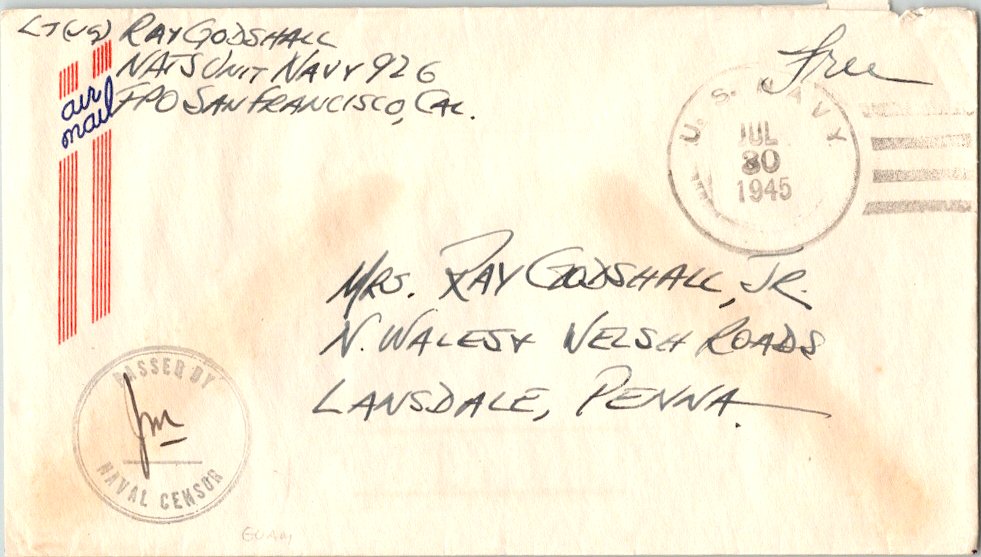 LT(JG) RAY GODSHALL
NATS UNIT NAVY 926
FPO SAN FRANCISCO, CAL.
air
mail
Free
U. S. NAVY
JUL
30
1945
MRS. RAY GODSHALL, JR.
N. WALES & WELSH ROADS
LANSDALE, PENNA.
PASSED BY
NAVAL CENSOR
GUAM